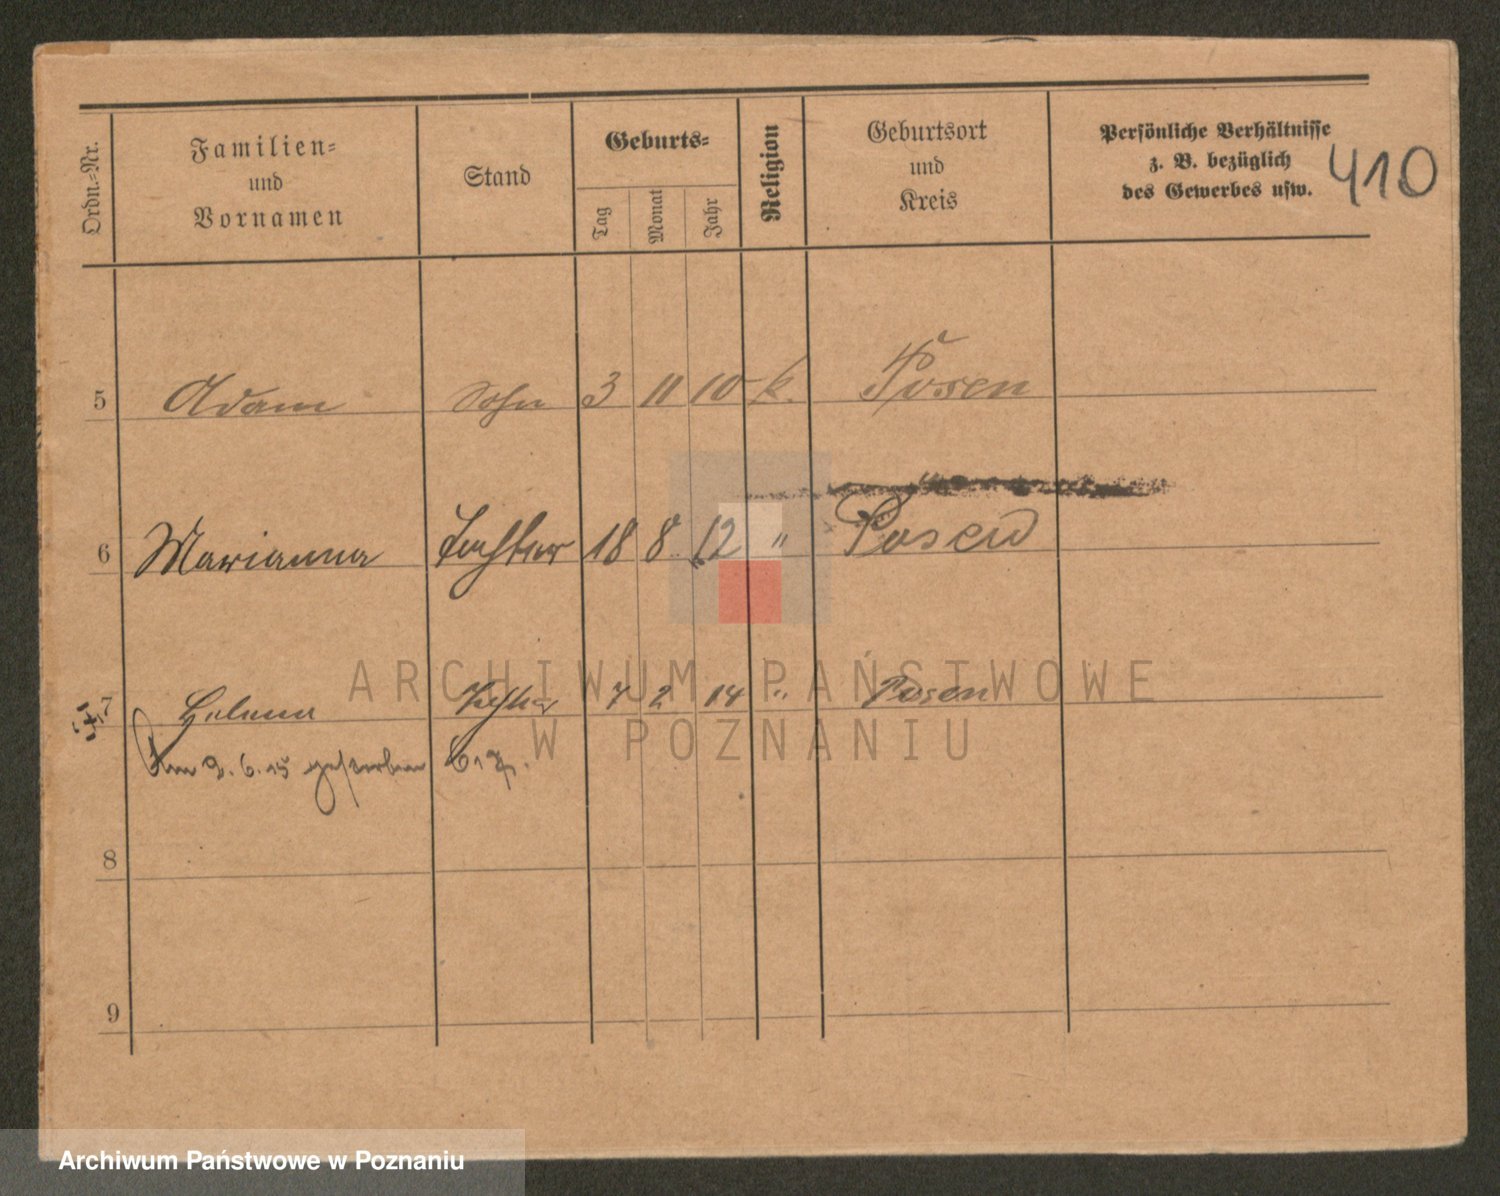 410
Ordn.=Nr. Familien= und Vornamen Stand Geburts= Tag Monat Jahr Religion Geburtsort und Kreis Persönliche Verhältnisse z. B. bezüglich des Gewerbes usw.
5 Adam Sohn 3 11 10 k. Posen
6 Marianna Tochter 18 8 12 " Posen
7 Helena Tochter 7 2 14 " Posen
Am 2. 6. 15 gestorben
8
9
ARCHIWUM PAŃSTWOWE
W POZNANIU
Archiwum Państwowe w Poznaniu